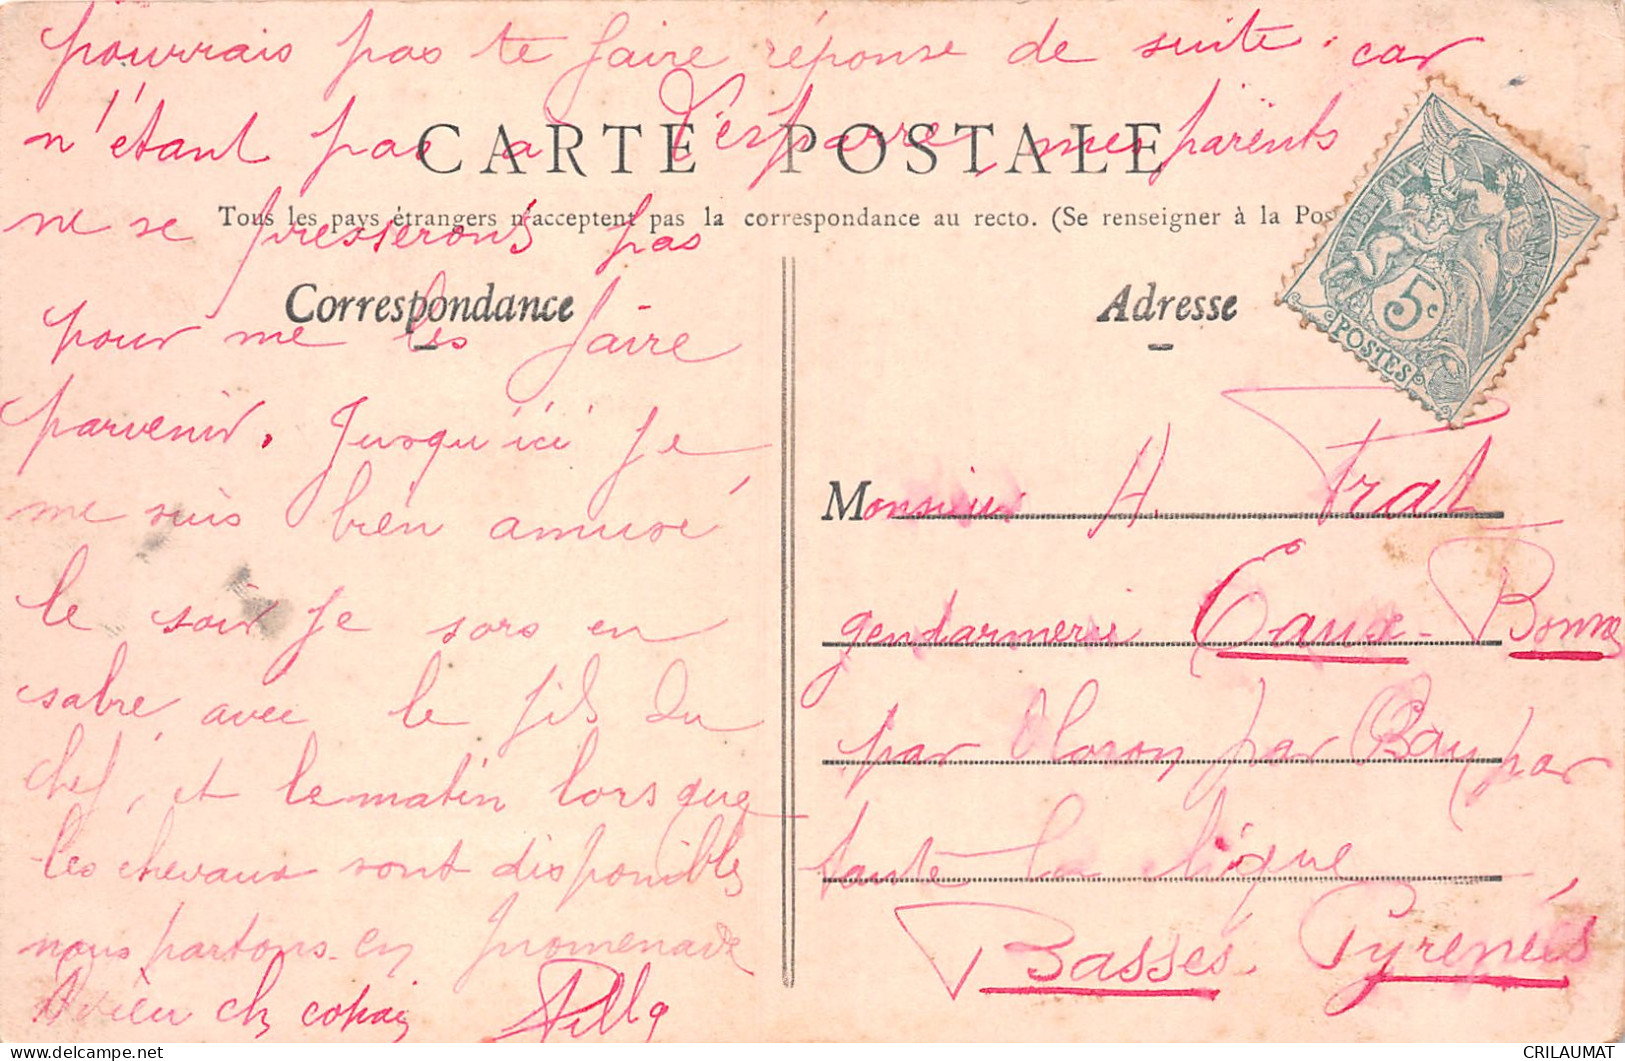 pourrais pas te faire réponse de suite. car
n'étant pas a Lesparre, mes parents
CARTE POSTALE
Tous les pays étrangers n'acceptent pas la correspondance au recto. (Se renseigner à la Pos
ne se presserons pas
Correspondance
pour me les faire
parvenir. Jusqu'ici je
me suis bien amusé
le soir je sors en
sabre avec le fils du
chef, et le matin lorsque
les chevaux sont disponibles
nous partons en promenade
Adieu ch copain
Adresse
5c
POSTES
Monsieur H. Prat
gendarmerie Eaux-Bonnes
par Oloron par Bau par
toute la clique
Basses Pyrenées
CRILAUMAT